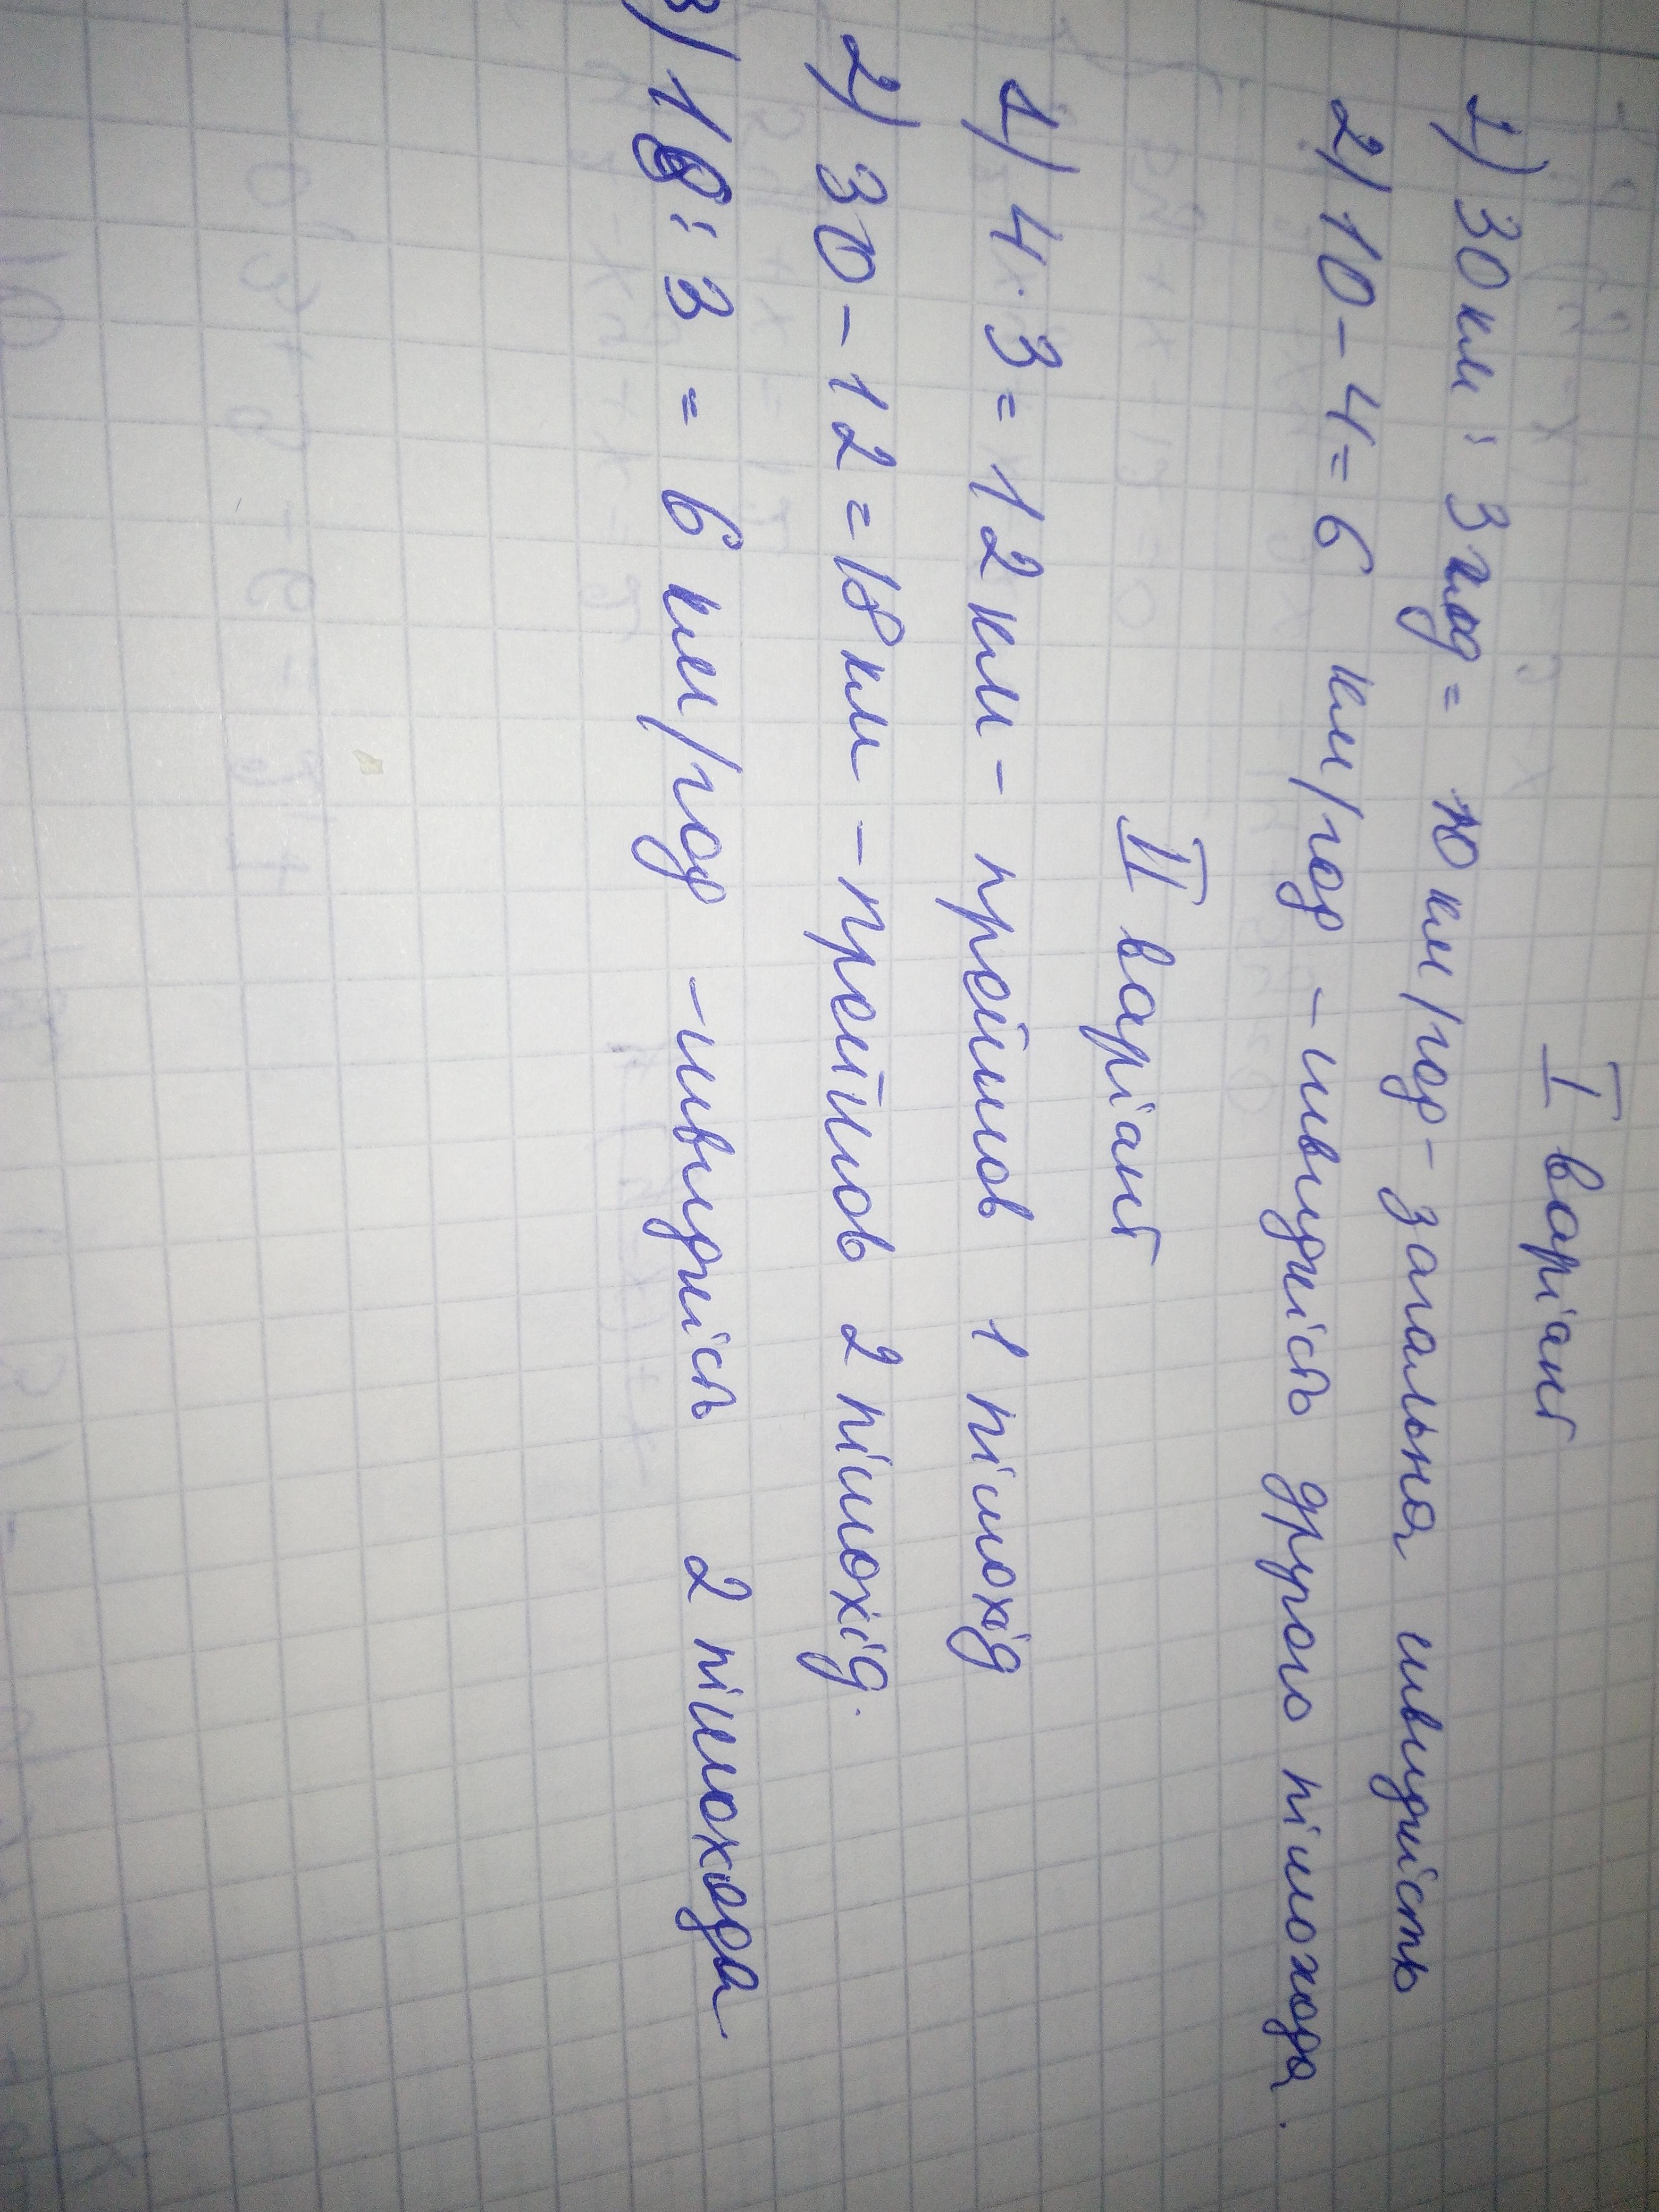 I варіант
1) 30 км : 3 год = 10 км/год - загальна швидкість
2) 10 - 4 = 6 км/год - швидкість другого пішохода.
II варіант
1) 4 · 3 = 12 км - прейшов 1 пішохід
2) 30 - 12 = 18 км - прейшов 2 пішохід.
3) 18 : 3 = 6 км/год - швидкість 2 пішохода